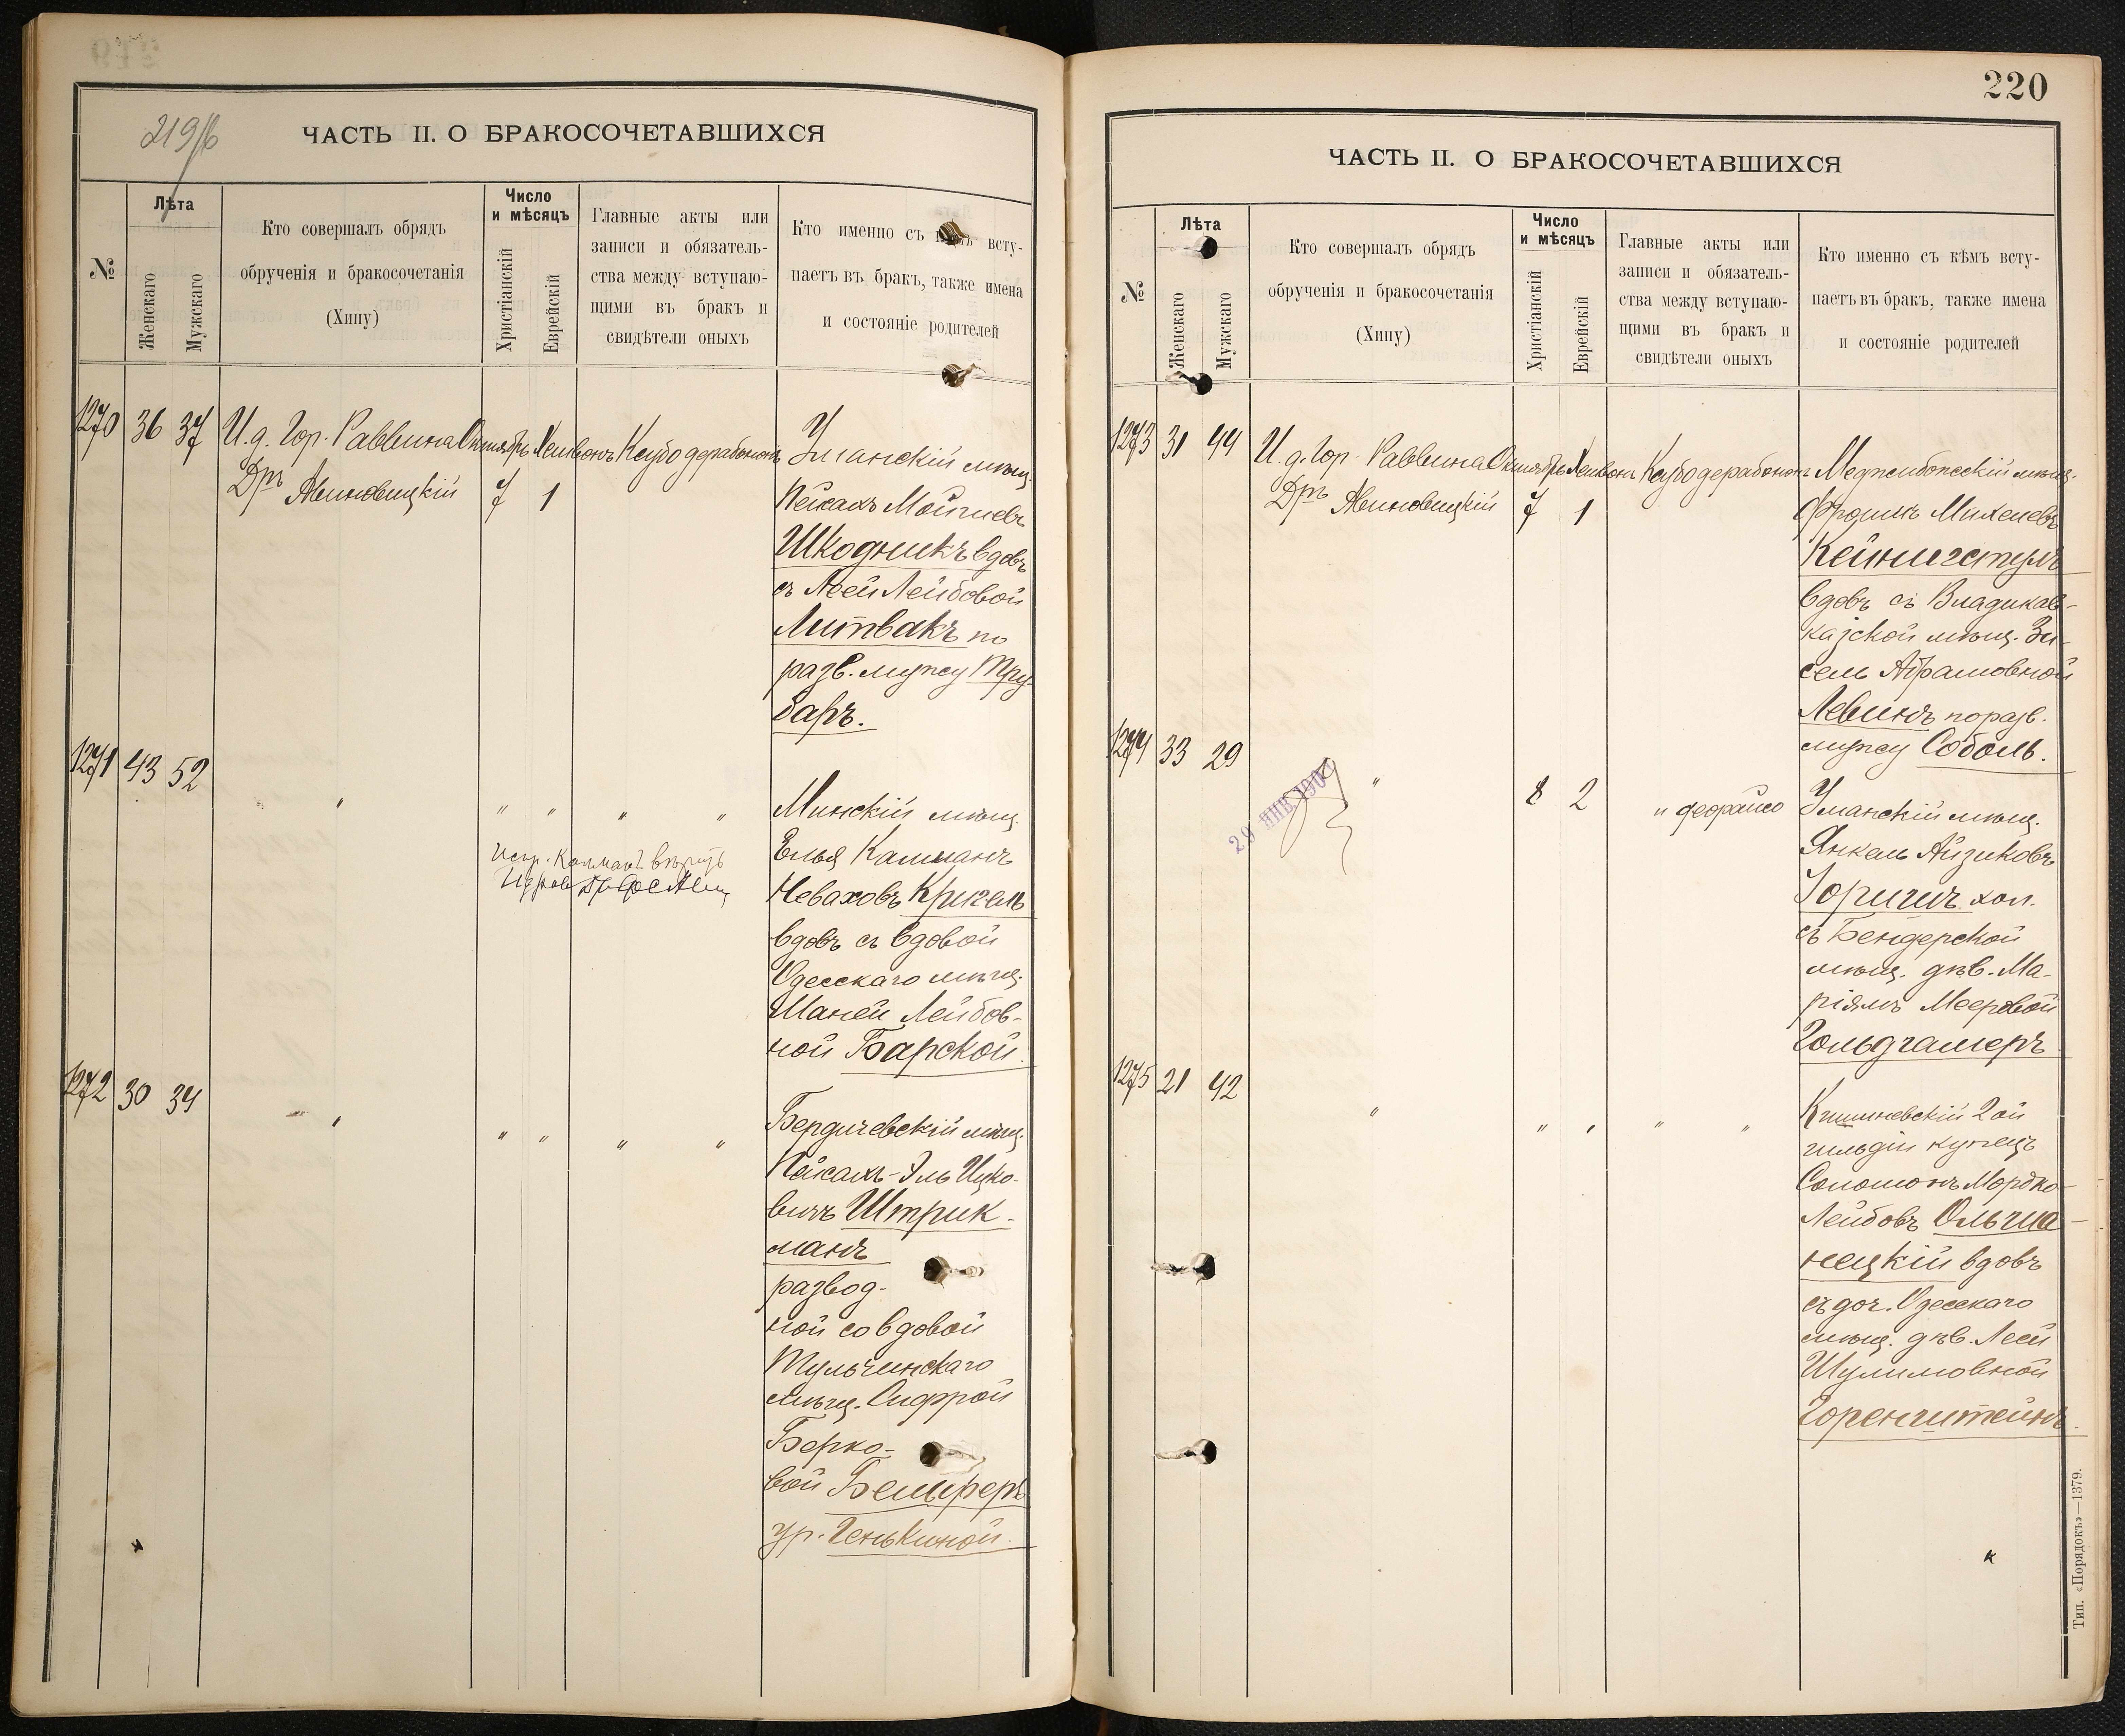 219/б
ЧАСТЬ II. О БРАКОСОЧЕТАВШИХСЯ
№
Лѣта
Женскаго
Мужскаго
Кто совершалъ обрядъ
обрученія и бракосочетанія
(Хипу)
Число
и мѣсяцъ
Христіанскій
Еврейскій
Главные акты или
записи и обязатель-
ства между вступаю-
щими въ бракъ и
свидѣтели оныхъ
Кто именно съ всту-
паетъ въ бракъ, также имена
и состояніе родителей
1270 36 37 И. д. Гор. Раввина Октябрь Хешвонъ Уманскій мѣщ.
Дръ Авиновицкій 7 1
Пейсахъ Мойшевъ
Школникъ вдовъ
съ Леей Лейбовой
Литвакъ по
разв. мужу Тру-
баръ.
1271 43 52 " " " " " Минскій мѣщ.
Елья Калманъ
Неваховъ Кригель
вдовъ съ вдовой
Одесскаго мѣщ.
Шаней Лейбов-
ной Барской.
Испр. Калманъ вѣрить
1272 30 34 " " " " " Бердичевскій мѣщ.
Пейсахъ-Эль Ицко-
вичъ Штрик-
манъ
развод-
ной со вдовой
Тульчинскаго
мѣщ. Сифрой
Берко-
вой
ур. Генькиной.
220
ЧАСТЬ II. О БРАКОСОЧЕТАВШИХСЯ
№
Лѣта
Женскаго
Мужскаго
Кто совершалъ обрядъ
обрученія и бракосочетанія
(Хипу)
Число
и мѣсяцъ
Христіанскій
Еврейскій
Главные акты или
записи и обязатель-
ства между вступаю-
щими въ бракъ и
свидѣтели оныхъ
Кто именно съ кѣмъ всту-
паетъ въ бракъ, также имена
и состояніе родителей
1273 31 44 И. д. Гор. Раввина Октябрь Хешвонъ Меджибожскій мѣщ.
Дръ Авиновицкій 7 1
Фроимъ Михелевъ
Кейнигстулъ
вдовъ съ Владикав-
казской мѣщ. Зи-
сель Абрамовной
Левинъ по разв.
мужу Соболь.
1274 33 29 " 8 2 " Уманскій мѣщ.
Янкель Айзиковъ
хол.
съ Бендерской
мѣщ. дѣв. Ма-
ріямъ Мееровой
Гольдгамеръ
1275 21 42 " " " " " Кишиневскій 2ой
гильдіи купецъ
Соломонъ Мордко-
Лейбовъ Ольша-
нецкій вдовъ
съ доч. Одесскаго
мѣщ. дѣв. Леей
Шулимовной
Горенштейнъ.
Тип. «Порядокъ»—1379.